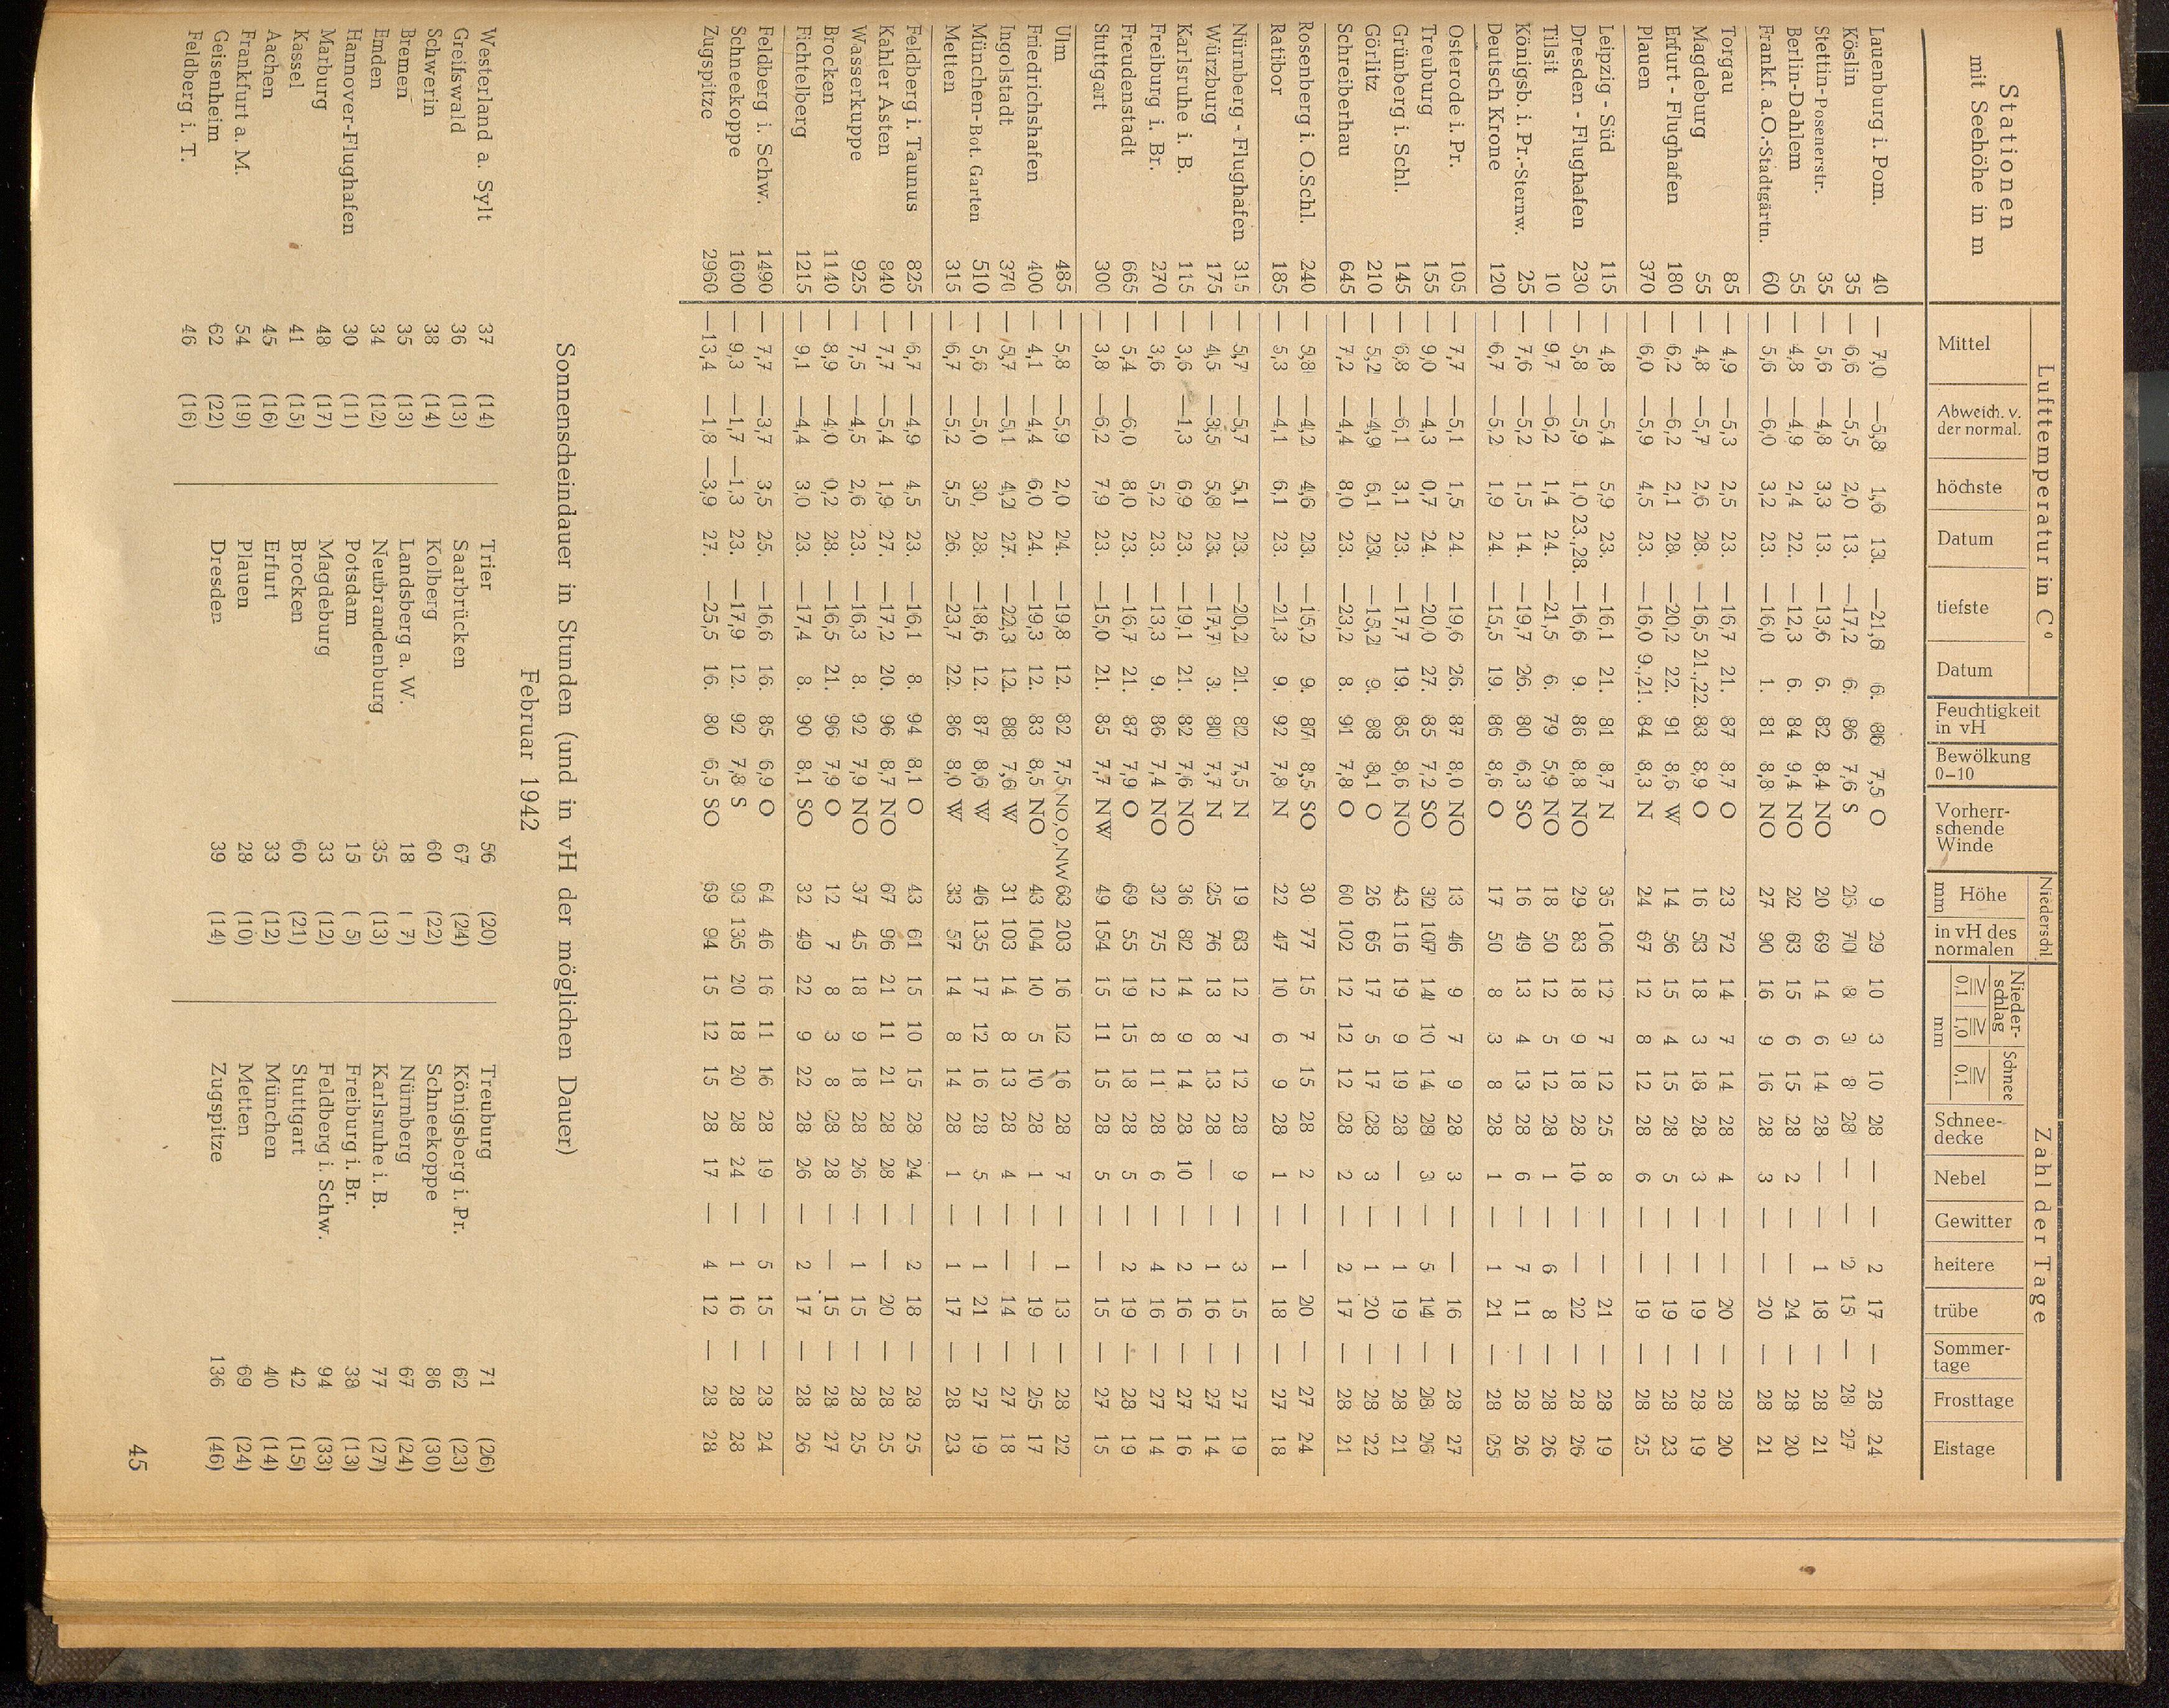 Stationen mit Seehöhe in m | Lufttemperatur in C° | Feuchtigkeit in vH | Bewölkung 0–10 | Vorherrschende Winde | Niederschl | Zahl der Tage
Mittel | Abweich. v. der normal. | höchste | Datum | tiefste | Datum | Höhe mm | in vH des normalen | Niederschlag ≧ 0,1 | ≧ 1,0 mm | Schnee ≧ 0,1 | Schneedecke | Nebel | Gewitter | heitere | trübe | Sommertage | Frosttage | Eistage
Lauenburg i. Pom. 40 — 7,0 —5,8 1,6 13. —21,6 6. 86 7,5 O 9 29 10 3 10 28 — — 2 17 — 28 24
Köslin 35 — 6,6 —5,5 2,0 13. —17,2 6. 86 7,6 S 26 70 8 3 8 28 — — 2 15 — 28 27
Stettin-Posenerstr. 35 — 5,6 —4,8 3,3 13. —13,6 6. 82 8,4 NO 20 69 14 6 14 28 — — 1 18 — 28 21
Berlin-Dahlem 55 — 4,8 —4,9 2,4 22. —12,3 6. 84 9,4 NO 22 63 15 6 15 28 2 — — 24 — 28 20
Frankf. a.O.-Stadtgärtn. 60 — 5,6 —6,0 3,2 23. —16,0 1. 81 8,8 NO 27 90 16 9 16 28 3 — — 20 — 28 21
Torgau 85 — 4,9 —5,3 2,5 23. —16,7 21. 87 8,7 O 23 72 14 7 14 28 4 — — 20 — 28 20
Magdeburg 55 — 4,8 —5,7 2,6 28. —16,5 21.,22. 83 8,9 O 16 53 18 3 18 28 3 — — 19 — 28 19
Erfurt - Flughafen 180 — 6,2 —6,2 2,1 28. —20,2 22. 91 8,6 W 14 56 15 4 15 28 5 — — 19 — 28 23
Plauen 370 — 6,0 —5,9 4,5 23. —16,0 9.,21. 84 8,3 N 24 67 12 8 12 28 6 — — 19 — 28 25
Leipzig - Süd 115 — 4,8 —5,4 5,9 23. —16,1 21. 81 8,7 N 35 106 12 7 12 25 8 — — 21 — 28 19
Dresden - Flughafen 230 — 5,8 —5,9 1,0 23.,28. —16,6 9. 86 8,8 NO 29 83 18 9 18 28 10 — — 22 — 28 26
Tilsit 10 — 9,7 —6,2 1,4 24. —21,5 6. 79 5,9 NO 18 50 12 5 12 28 1 — 6 8 — 28 26
Königsb. i. Pr.-Sternw. 25 — 7,6 —5,2 1,5 14. —19,7 26. 80 6,3 SO 16 49 13 4 13 28 6 — 7 11 — 28 26
Deutsch Krone 120 — 6,7 —5,2 1,9 24. —15,5 19. 86 8,6 O 17 50 8 3 8 28 1 — 1 21 — 28 25
Osterode i. Pr. 105 — 7,7 —5,1 1,5 24. —19,6 26. 87 8,0 NO 13 46 9 7 9 28 3 — — 16 — 28 27
Treuburg 155 — 9,0 —4,3 0,7 24. —20,0 27. 85 7,2 SO 32 107 14 10 14 28 3 — 5 14 — 28 26
Grünberg i. Schl. 145 — 6,8 —6,1 3,1 23. —17,7 19. 85 8,6 NO 43 116 19 9 19 28 — — 1 19 — 28 21
Görlitz 210 — 5,2 —4,9 6,1 23. —15,2 9. 88 8,1 O 26 65 17 5 17 28 3 — 1 20 — 28 22
Schreiberhau 645 — 7,2 —4,4 8,0 23. —23,2 8. 91 7,8 O 60 102 12 12 12 28 2 — 2 17 — 28 21
Rosenberg i. O.Schl. 240 — 5,8 —4,2 4,6 23. —15,2 9. 87 8,5 SO 30 77 15 7 15 28 2 — — 20 — 27 24
Ratibor 185 — 5,3 —4,1 6,1 23. —21,3 9. 92 7,8 N 22 47 10 6 9 28 1 — 1 18 — 27 18
Nürnberg - Flughafen 315 — 5,7 —5,7 5,1 23. —20,2 21. 82 7,5 N 19 63 12 7 12 28 9 — 3 15 — 27 19
Würzburg 175 — 4,5 —3,5 5,8 23. —17,7 3. 80 7,7 N 25 76 13 8 13 28 — — 1 16 — 27 14
Karlsruhe i. B. 115 — 3,6 —1,3 6,9 23. —19,1 21. 82 7,6 NO 36 82 14 9 14 28 10 — 2 16 — 27 16
Freiburg i. Br. 270 — 3,6 5,2 23. —13,3 9. 86 7,4 NO 32 75 12 8 11 28 6 — 4 16 — 27 14
Freudenstadt 665 — 5,4 —6,0 8,0 23. —16,7 21. 87 7,9 O 69 55 19 15 18 28 5 — 2 19 — 28 19
Stuttgart 300 — 3,8 —6,2 7,9 23. —15,0 21. 85 7,7 NW 49 154 15 11 15 28 5 — — 15 — 27 15
Ulm 485 — 5,8 —5,9 2,0 24. —19,8 12. 82 7,5 NO,O,NW 63 203 16 12 16 28 7 — 1 13 — 28 22
Friedrichshafen 400 — 4,1 —4,4 6,0 24. —19,3 12. 83 8,5 NO 43 104 10 5 10 28 1 — — 19 — 25 17
Ingolstadt 370 — 5,7 —5,1 4,2 27. —22,3 12. 88 7,6 W 31 103 14 8 13 28 4 — — 14 — 27 18
München-Bot. Garten 510 — 5,6 —5,0 30, 28. —18,6 12. 87 8,6 W 46 135 17 12 16 28 5 — 1 21 — 27 19
Metten 315 — 6,7 —5,2 5,5 26. —23,7 22. 86 8,0 W 33 57 14 8 14 28 1 — 1 17 — 28 23
Feldberg i. Taunus 825 — 6,7 —4,9 4,5 23. —16,1 8. 94 8,1 O 43 61 15 10 15 28 24 — 2 18 — 28 25
Kahler Asten 840 — 7,7 —5,4 1,9 27. —17,2 20. 96 8,7 NO 67 96 21 11 21 28 28 — — 20 — 28 25
Wasserkuppe 925 — 7,5 —4,5 2,6 23. —16,3 8. 92 7,9 NO 37 45 18 9 18 28 26 — 1 15 — 28 25
Brocken 1140 — 8,9 —4,0 0,2 28. —16,5 21. 96 7,9 O 12 7 8 3 8 28 28 — — 15 — 28 27
Fichtelberg 1215 — 9,1 —4,4 3,0 23. —17,4 8. 90 8,1 SO 32 49 22 9 22 28 26 — 2 17 — 28 26
Feldberg i. Schw. 1490 — 7,7 —3,7 3,5 25. —16,6 16. 85 6,9 O 64 46 16 11 16 28 19 — 5 15 — 28 24
Schneekoppe 1600 — 9,3 —1,7 —1,3 23. —17,9 12. 92 7,8 S 93 135 20 18 20 28 24 — 1 16 — 28 28
Zugspitze 2960 —13,4 —1,8 —3,9 27. —25,5 16. 80 6,5 SO 69 94 15 12 15 28 17 — 4 12 — 28 28
Sonnenscheindauer in Stunden (und in vH der möglichen Dauer)
Februar 1942
Westerland a. Sylt 37 (14) Trier 56 (20) Treuburg 71 (26)
Greifswald 36 (13) Saarbrücken 67 (24) Königsberg i. Pr. 62 (23)
Schwerin 38 (14) Kolberg 60 (22) Schneekoppe 86 (30)
Bremen 35 (13) Landsberg a. W. 18 ( 7) Nürnberg 67 (24)
Emden 34 (12) Neubrandenburg 35 (13) Karlsruhe i. B. 77 (27)
Hannover-Flughafen 30 (11) Potsdam 15 ( 5) Freiburg i. Br. 38 (13)
Marburg 48 (17) Magdeburg 33 (12) Feldberg i. Schw. 94 (33)
Kassel 41 (15) Brocken 60 (21) Stuttgart 42 (15)
Aachen 45 (16) Erfurt 33 (12) München 40 (14)
Frankfurt a. M. 54 (19) Plauen 28 (10) Metten 69 (24)
Geisenheim 62 (22) Dresden 39 (14) Zugspitze 136 (46)
Feldberg i. T. 46 (16)
45